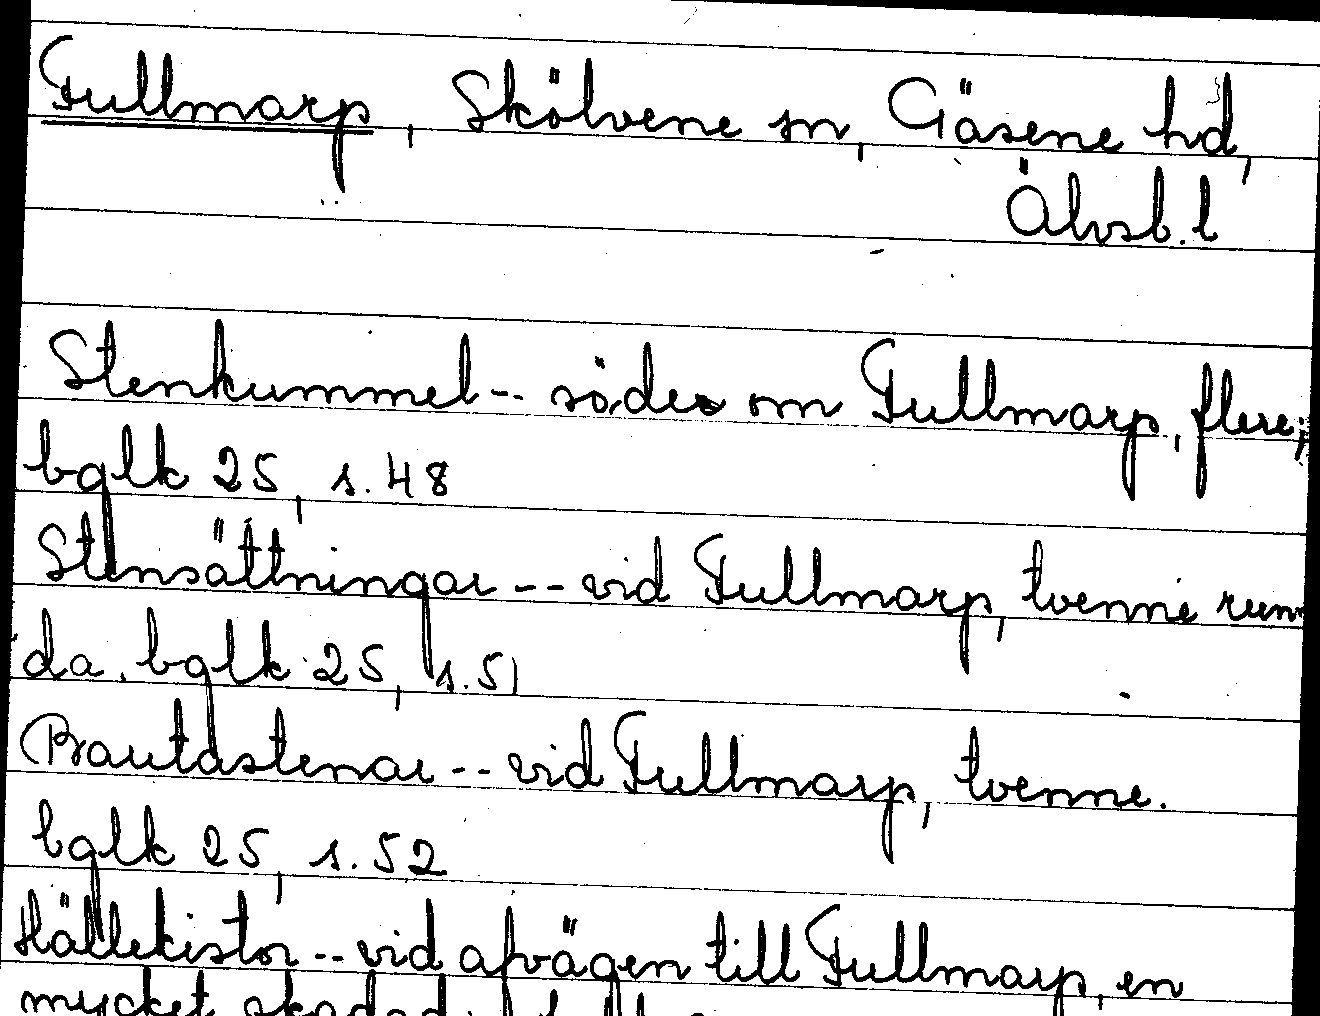 Fullmarp, Skölvene sn, Gäsene hd,
Älvsb. l
Stenkummel -- söder om Fullmarp, flere;
bglk 25, s. 48
Stensättningar -- vid Fullmarp, tvenne run
da. bglk 25, s. 51
Bautastenar -- vid Fullmarp, tvenne.
bglk 25, s. 52
Hällekistor -- vid afvägen till Fullmarp, en
mycket skadad;